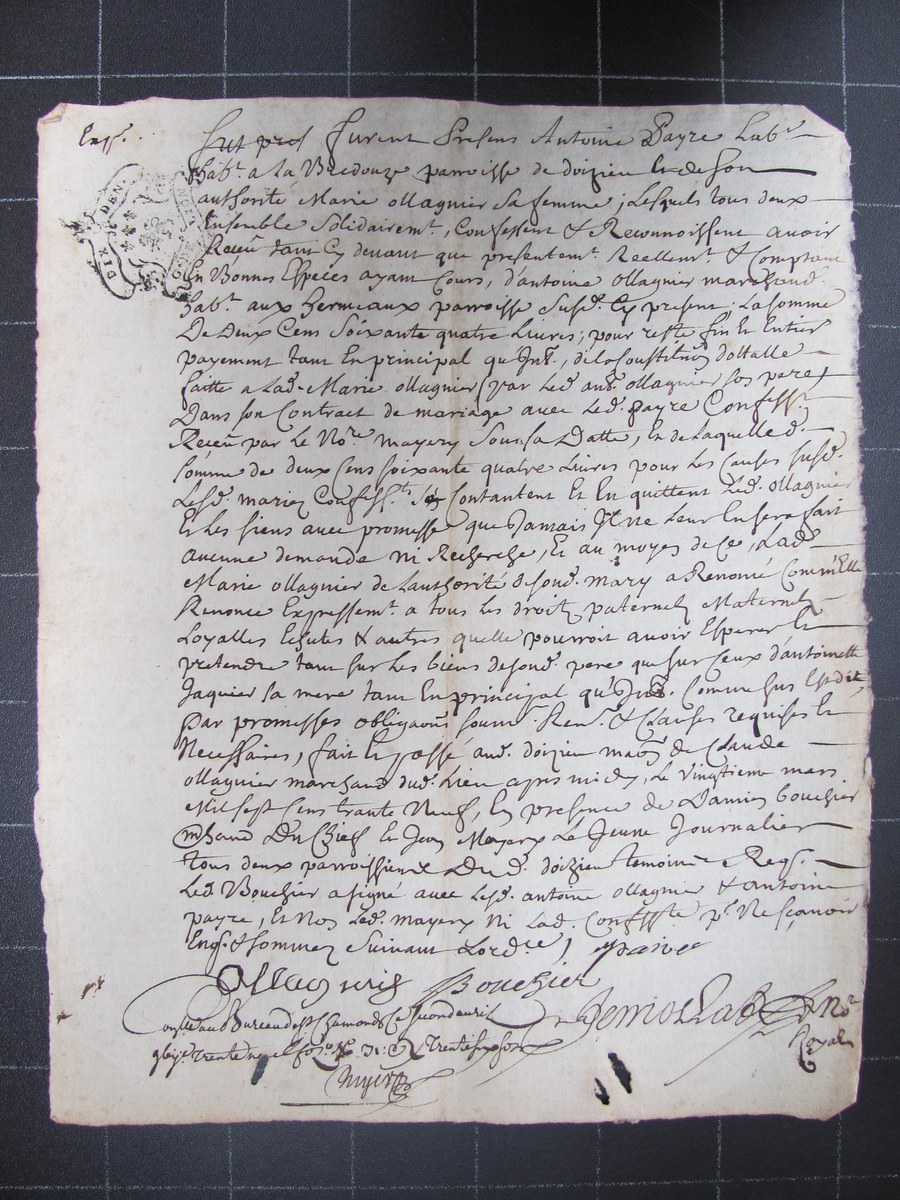 Exp.
furent Presens Antoine Payre Labr
habt. a la Bredouze parroisse de doizieu Et de son
authorité Marie ollagnier sa femme; Lesquels tous deux
Ensemble Solidairemt, Confessent & Reconnoissent avoir
Reçeu tant Cy devant que presentemt. Reellemt & Comptant
En Bonnes Especes ayant Cours, d'antoine ollagnier marchand
habt. aux hermeaux parroisse susd. Cy present; La somme
De Deux Cens Soixante quatre Livres; pour reste fin Et Entier
payement tant En principal qu'Int., de la Constitution dottalle
faitte a Lad. Marie ollagnier (par Led. ant. ollagnier son pere)
Dans son Contract de mariage avec Led. payre Confesst
Reçeu par Le Nore mayery Sous sa Datte, Et de Laquelle d.
somme de deux Cens soixante quatre Livres pour Les Causes susd.
Lesd. mariez Confessts. se Contantent Et En quittent Led. ollagnier
Et Les siens avec promesse que Jamais Il ne Leur En sera fait
aucune demande ni Recherche, Et au moyen de Ce, Lad.
Marie ollagnier de Lauthorité desond. mary a Renoncé Comm'Elle
Renonce Expressemt. a tous Les droits paternels Maternels
Loyalles Echutes & autres quelle pourroit avoir Esperer Et
pretendre tant sur Les biens desond. pere que sur Ceux d'antoinette
Jaquier sa mere tant En principal qu'Int. Comme sus Est dit,
Par promesses obligaons soum. Ren. & Clauses requises Et
Necessaires, fait Et passé aud. doizieu maon de Claude
ollagnier marchand dud. Lieu apres midy, Le vingtieme mars
Mil sept Cens trante Neuf, En presence de Damien bouchier
mhand Du Chief Et Jean Mayery Le Jeune Journalier
tous deux parroissiens Dud. doizieu temoins Reqs.
Led. Bouchier a signé avec Lesd. antoine ollagnier & antoine
payre, Et Non Led. mayery ni Lad. Confesste pr. Ne sçavoir
Enqs. & sommez suivant Lord.ce; paire
Ollagnier Bouchier
au Bureau de st Chamond Ce second avril
trente neuf Trente six sols
Nore
Royal
DIX DEN.